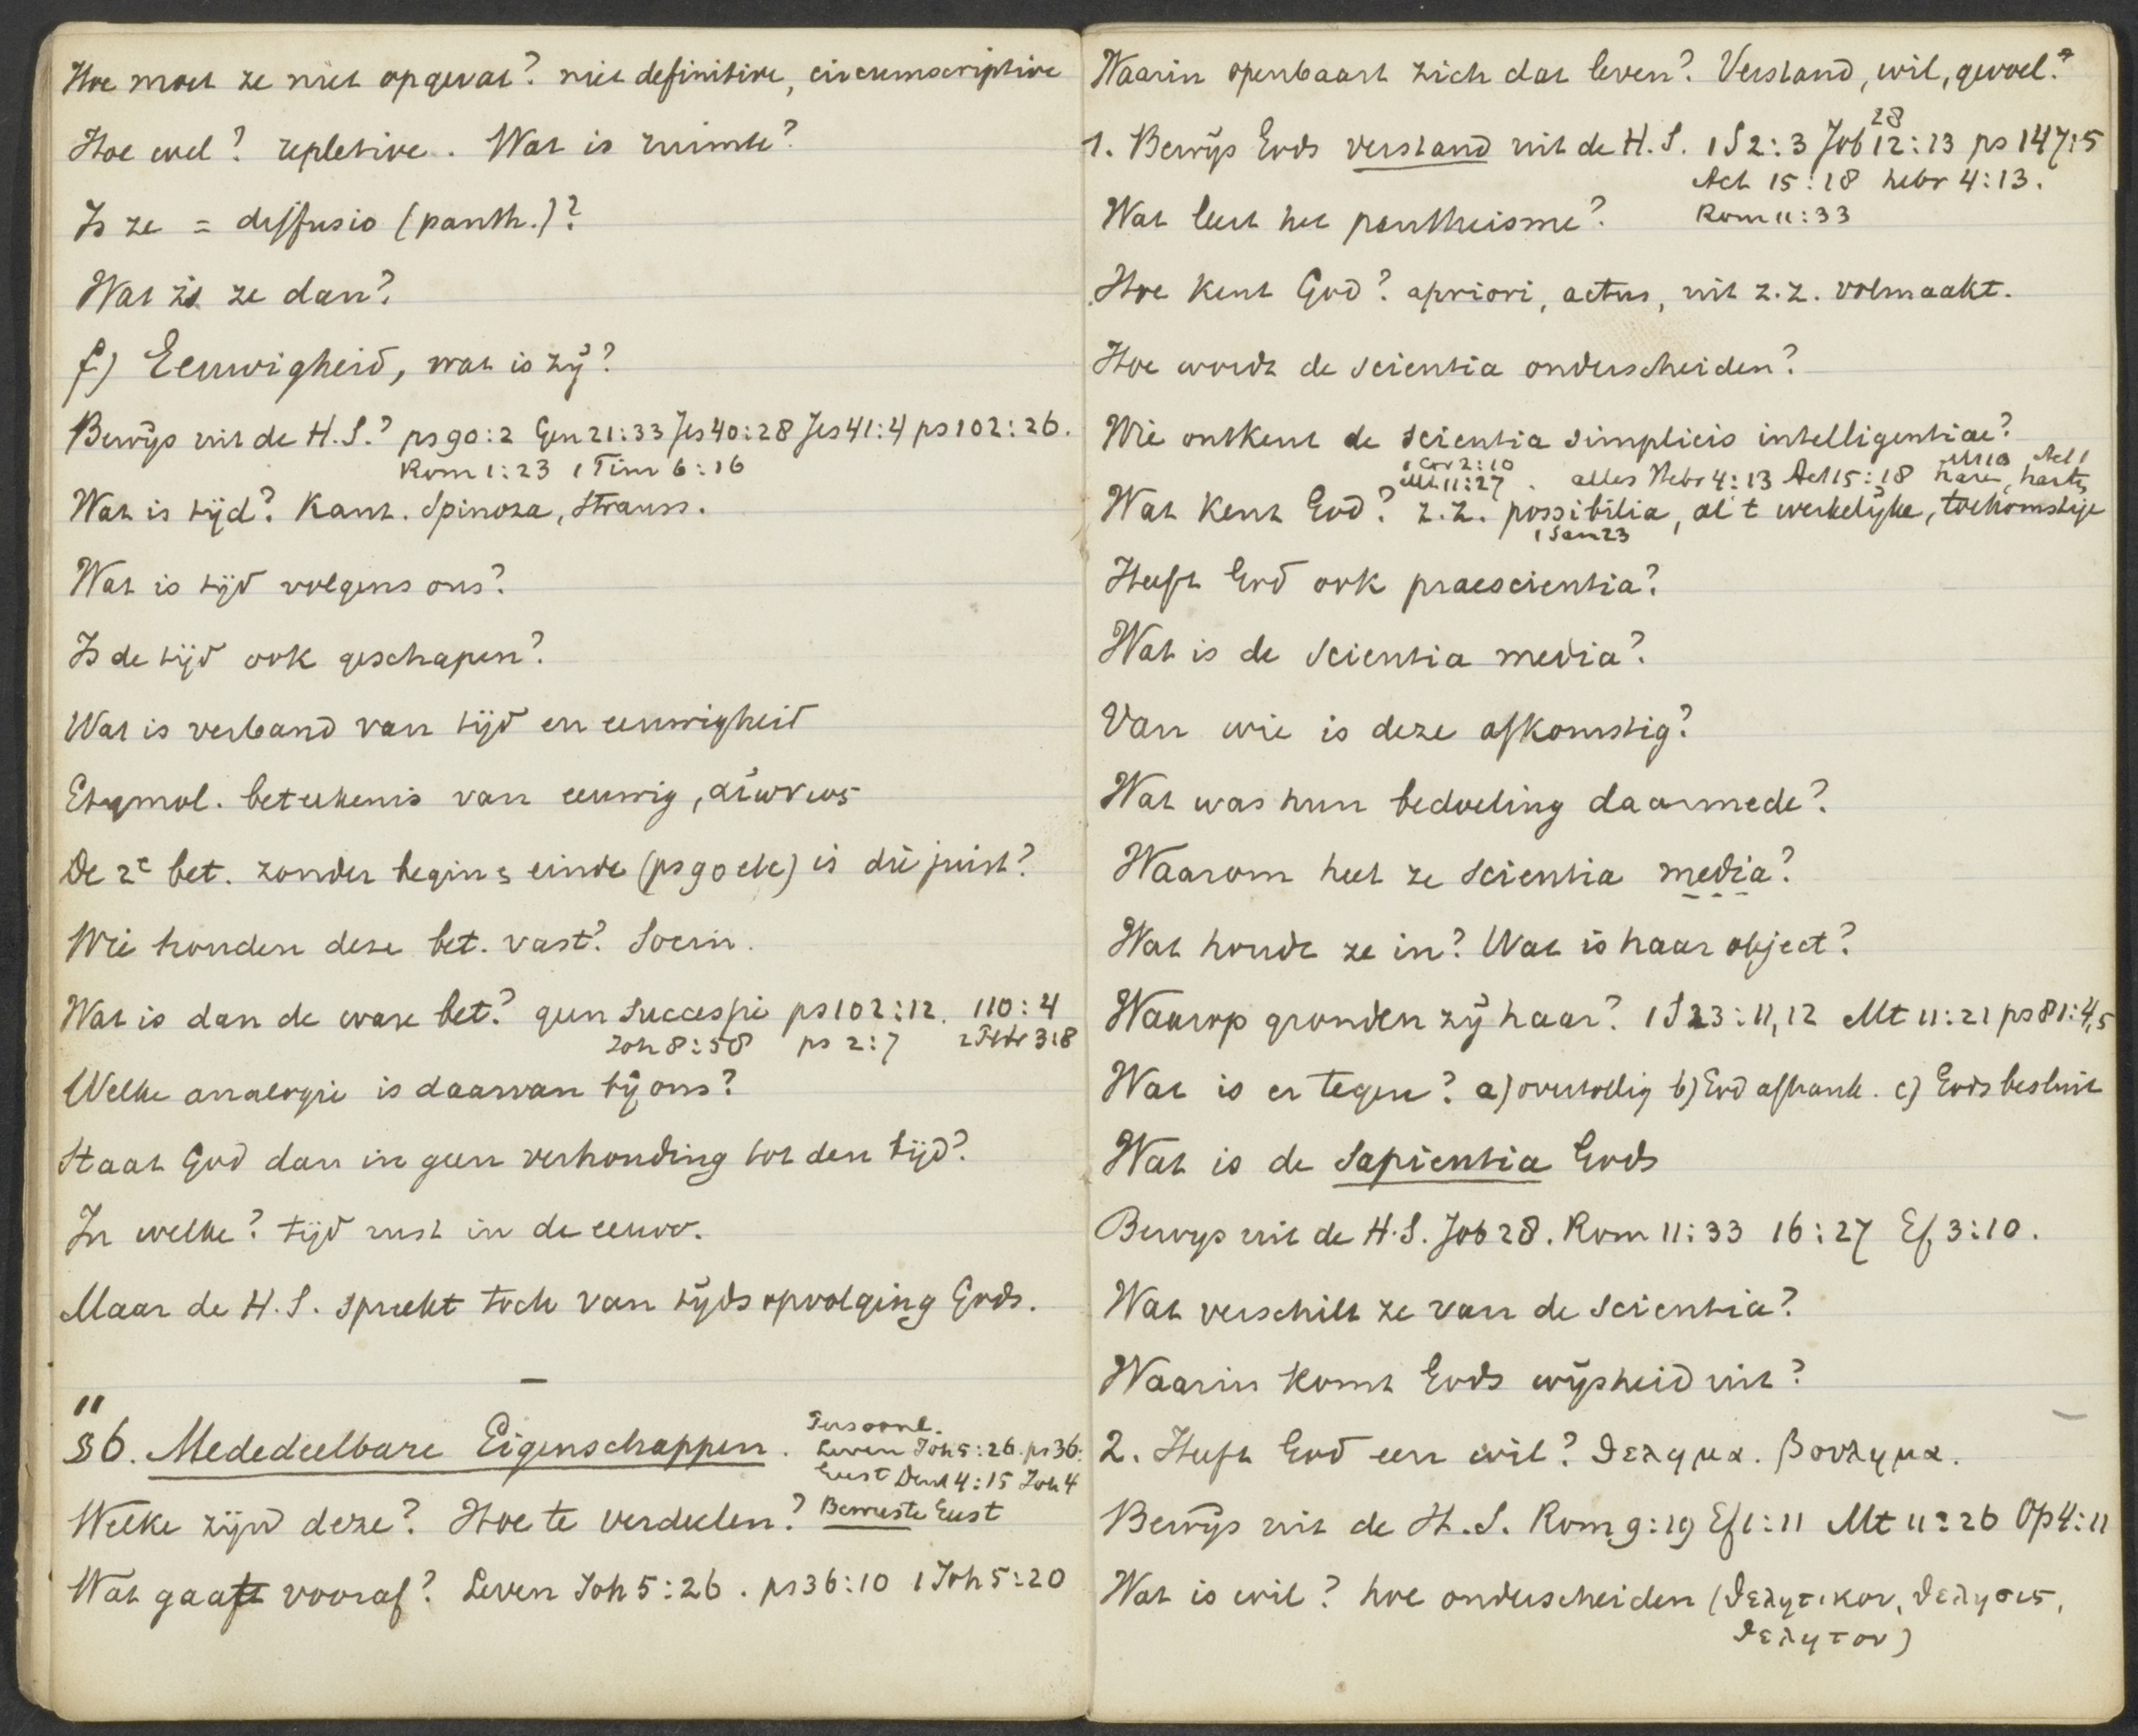 Hoe moet ze niet opgevat? niet definitive, circumscriptive
Hoe wel? repletive. Wat is ruimte?
Is ze = diffusio (panth.)?
Wat is ze dan?
f) Eeuwigheid, wat is zij?
Bewijs uit de H.S.? ps 90:2 Gen 21:33 Jes 40:28 Jes 41:4 ps 102:26.
Rom 1:23 1 Tim 6:16
Wat is tijd? Kant. Spinoza, Strauss.
Wat is tijd volgens ons?
Is de tijd ook geschapen?
Wat is verband van tijd en eeuwigheid
Etymol. beteekenis van eeuwig, αιωνιος
De 2e bet. zonder begin & einde (ps 90 etc) is die juist?
Wie houden deze bet. vast? Socin.
Wat is dan de ware bet.? geen successie ps 102:12. 110:4
Joh 8:58 ps 2:7 2 Petr 3:8
Welke analogie is daarvan bij ons?
Staat God dan in geen verhouding tot den tijd?
In welke? tijd rust in de eeuw.
Maar de H.S. spreekt toch van tijdsopvolging Gods.
—
11
§6. Mededeelbare Eigenschappen.
Persoonl.
Leven Joh 5:26. ps 36:
Geest Deut 4:15 Joh 4
Welke zijn deze? Hoe te verdeelen? Bewuste Geest
Wat gaat vooraf? Leven Joh 5:26. ps 36:10 1 Joh 5:20
Waarin openbaart zich dat leven? Verstand, wil, gevoel?
28
1. Bewijs Gods verstand uit de H.S. 1 S 2:3 Job 12:13 ps 147:5
Act 15:18 hebr 4:13.
Wat leert het pantheisme? Rom 11:33
Hoe kent God? apriori, actus, uit z.z. volmaakt.
Hoe wordt de scientia onderscheiden?
Wie ontkent de scientia simplicis intelligentiae?
1 Cor 2:10 Mt 10 Act 1
Mt. 11:27. alles Hebr 4:13 Act 15:18 haren, harts
Wat kent God? z.z. possibilia, al 't werkelijke, toekomstige
1 Sam 23
Heeft God ook praescientia?
Wat is de scientia media?
Van wie is deze afkomstig?
Wat was hun bedoeling daarmede?
Waarom heet ze scientia media?
Wat houdt ze in? Wat is haar object?
Waarop gronden zij haar? 1 S 23:11,12 Mt 11:21 ps 81:4,5
Wat is er tegen? a) overtollig b) God afhank. c) Gods besluit
Wat is de Sapientia Gods
Bewijs uit de H.S. Job 28. Rom 11:33 16:27 Ef 3:10.
Wat verschilt ze van de scientia?
Waarin komt Gods wijsheid uit?
2. Heeft God een wil? θελημα. βουλημα.
Bewijs uit de H.S. Rom 9:19 Ef 1:11 Mt 11:26 Op 4:11
Wat is wil? hoe onderscheiden (θελητικον, θελησις,
θελητον)